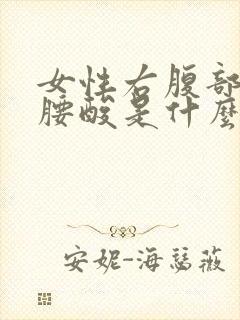 女性右腹部
腰酸是什麼
安妮-海瑟薇